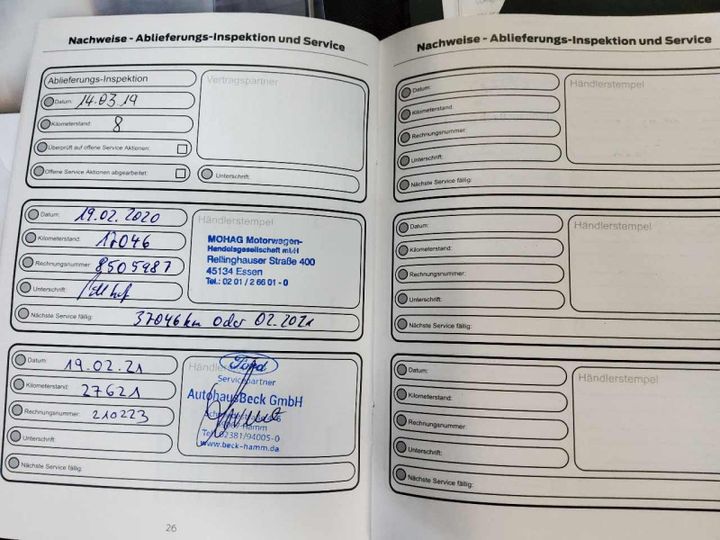 Nachweise - Ablieferungs-Inspektion und Service
Ablieferungs-Inspektion
Vertragspartner
Datum: 14.03.19
Kilometerstand: 8
Überprüft auf offene Service Aktionen:
Offene Service Aktionen abgearbeitet:
Unterschrift:
Datum: 19.02.2020
Händlerstempel
Kilometerstand: 17046
MOHAG Motorwagen-
Handelsgesellschaft mbH
Rellinghauser Straße 400
45134 Essen
Tel.: 02 01 / 2 66 01 - 0
Rechnungsnummer: 8505987
Unterschrift:
Nächste Service fällig: 37046 km oder 02.2021
Datum: 19.02.21
Ford
Servicepartner
AutohausBeck GmbH
Tel. 02381/94005-0
www.beck-hamm.de
Kilometerstand: 27621
Rechnungsnummer: 210223
Unterschrift:
Nächste Service fällig:
26
Nachweise - Ablieferungs-Inspektion und Service
Datum:
Händlerstempel
Kilometerstand:
Rechnungsnummer:
Unterschrift:
Nächste Service fällig:
Datum:
Händlerstempel
Kilometerstand:
Rechnungsnummer:
Unterschrift:
Nächste Service fällig:
Datum:
Händlerstempel
Kilometerstand:
Rechnungsnummer:
Unterschrift:
Nächste Service fällig: